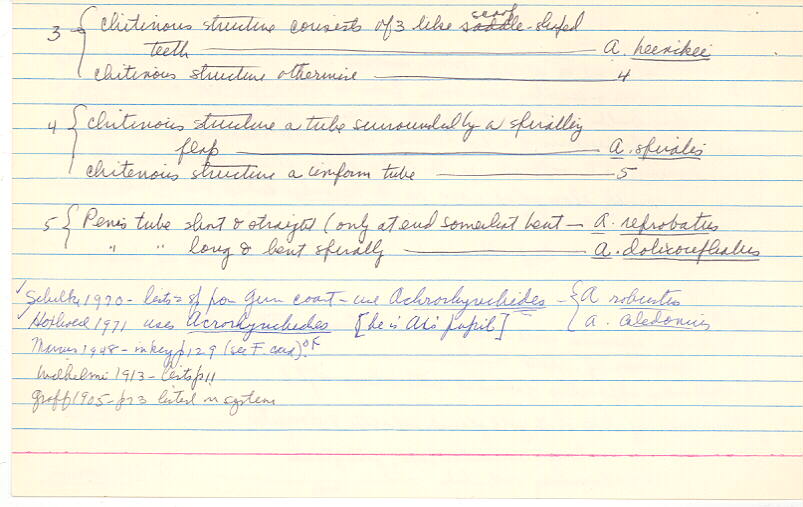 3 { chitinous structure consists of 3 like scoop saddle-shaped
teeth — A. heinckei
chitenous structure otherwise — 4
4 { chitenoios structure a tube surrounded by a spiralling
flap — A. spiralis
chitenoios structure a uniform tube — 5
5 { Penis tube short & straight (only at end somewhat bent — A. reprobatus
" " long & bent spirally — A. dolicocephalus
✓ Schilke 1970 - lists 2 sp from Germ coast - use Achrorhynchides - { A robustus
✓ Hoxhold 1971 uses Acrorhynchides [he is Ax's pupil] A. caledonius
Marcus 1948 - in key p 129 (see F. card) OK
Wilhelmi 1913 - lists p 11
Graff 1905 - p 73 listed in system